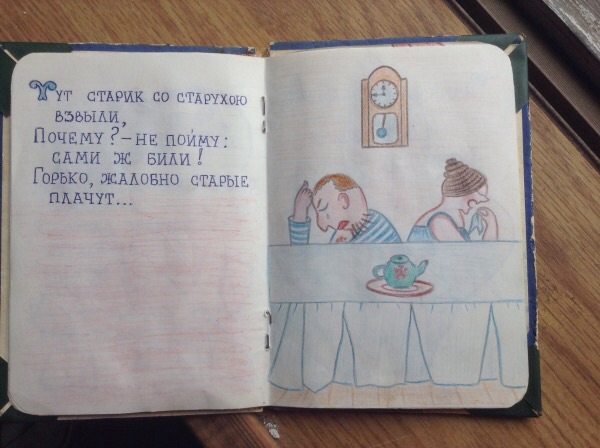 Тут старик со старухою
взвыли,
Почему? – не пойму:
сами ж били!
Горько, жалобно старые
плачут...